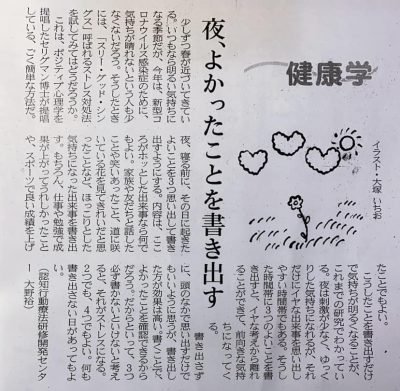 健康学
イラスト・大塚 いちお
夜、よかったことを書き出す
少しずつ春が近づいてきてい
る。いつもなら明るい気持ちに
なる季節だが、今年は、新型コ
ロナウイルス感染症のために、
気持ちが晴れないという人も少
なくないだろう。そうしたとき
には、「スリー・グッド・シン
グズ」呼ばれるストレス対処法
を試してみてはどうだろうか。
これは、ポジティブ心理学を
提唱したセリグマン博士が提唱
している、ごく簡単な方法だ。
夜、寝る前に、その日に起きた
よいことを3つ思い出して書き
出すようにする。内容は、ここ
ろがホッとした出来事なら何で
もよい。家族や友だちと話した
ことや笑いあったこと、道に咲
いている花を見てきれいだと思
ったことなど、ほっこりとした
気持ちになった出来事を書き出
す。もちろん、仕事や勉強で成
果が上がってうれしかったこと
や、スポーツで良い成績を上げ
たことでもよい。
こうしたことを書き出すだけ
で気持ちが明るくなることが、
これまでの研究でわかってい
る。夜は刺激が少なく、ゆっく
りした気持ちになれるが、それ
だけにイヤな出来事を思い出し
やすい時間帯でもある。そうし
た時間帯に3つのよいことを書
き出すと、イヤな考えから離れ
ることができて、前向きな気持
ちになってく
る。
書き出さず
に、頭のなかで思い出すだけで
もいいように思うが、書き出し
た方が効果は高い。書くことで
よかったことを確認できるから
だろう。だからといって、3つ
必ず書かないといけないと考え
ると、それがストレスになる。
2つでも、4つでもよい。何も
書き出さない日があってもよ
い。
（認知行動療法研修開発センタ
ー 大野裕）